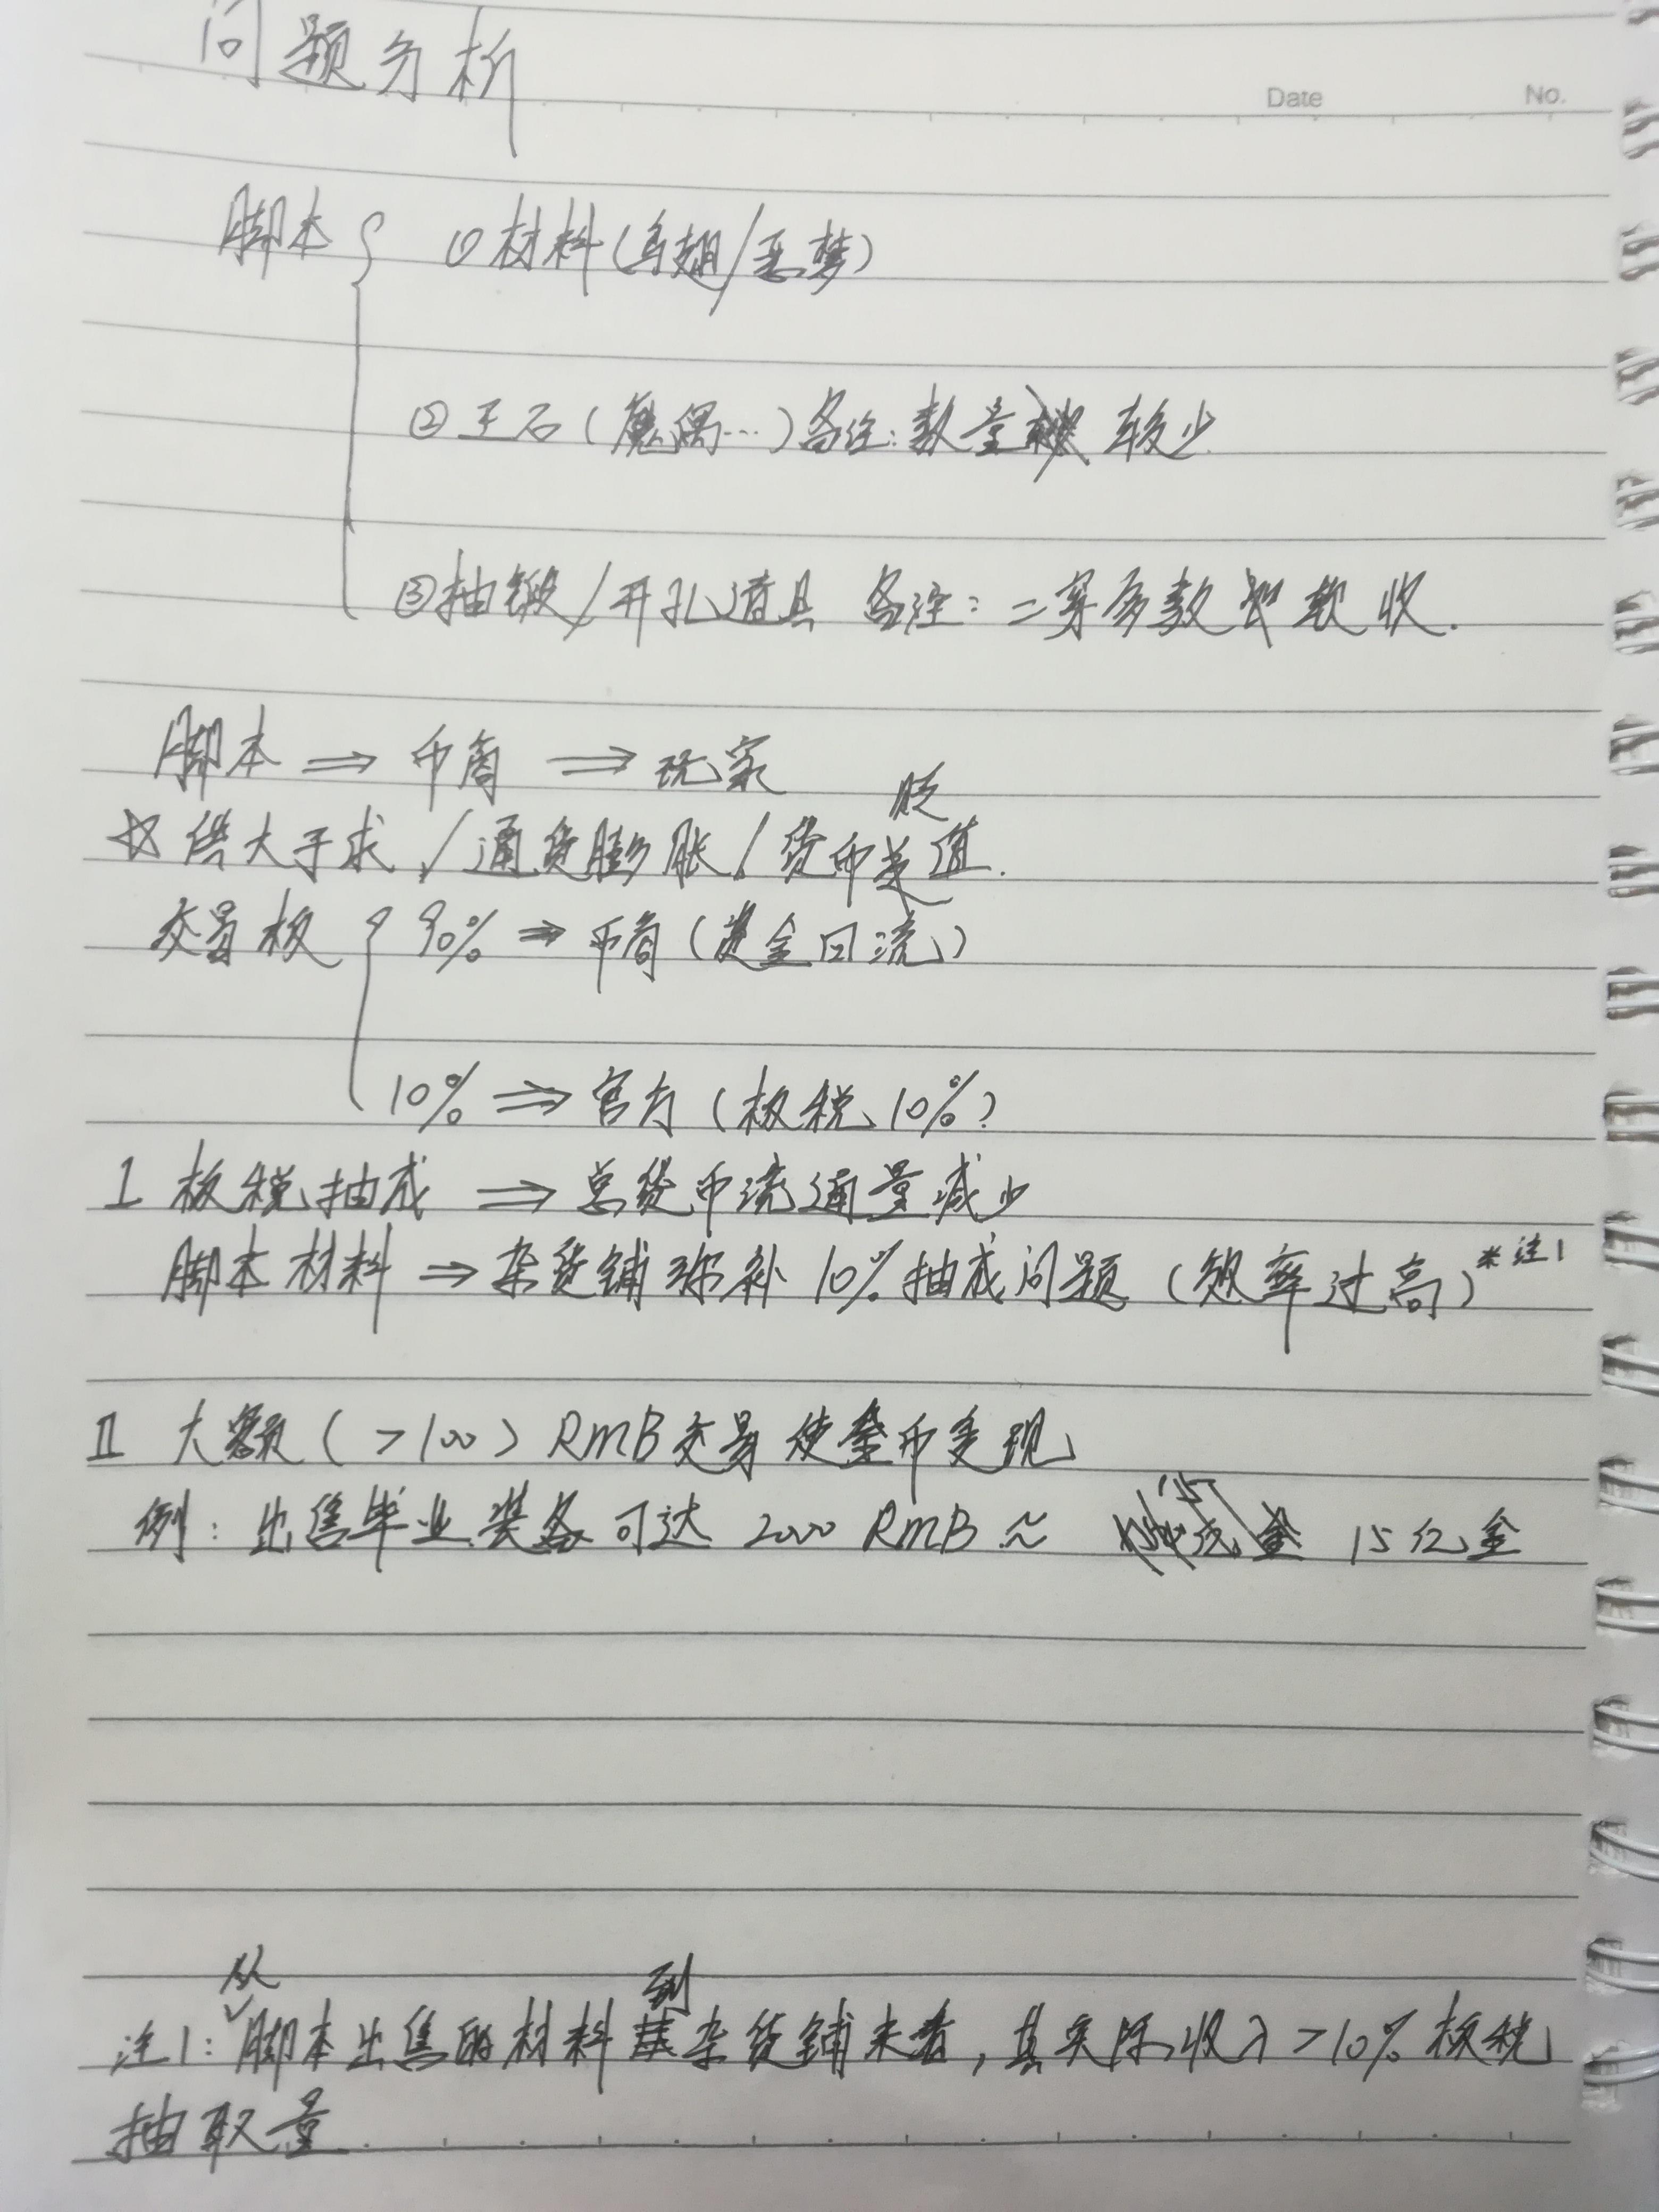 问题分析
Date No.
脚本 ①材料(乌翅/恶梦)
②王石(魔偶…)备注:数量 较少.
③抽锻/开孔道具 备注:二穿多数 收.
脚本 ⇒ 币商 ⇒ 玩家
☆供大于求/通货膨胀/货币贬值.
交易板 90% ⇒ 币商(资金回流)
10% ⇒ 官方(板税10%)
I 板税抽成 ⇒ 总货币流通量减少
脚本材料 ⇒ 杂货铺弥补10%抽成问题(效率过高)*注1
II 大额(>100)RMB交易使金币变现
例:出售毕业装备可达2000 RMB ≈ 15亿金
注1:从脚本出售的材料到杂货铺来看,其实际收入>10%板税
抽取量.